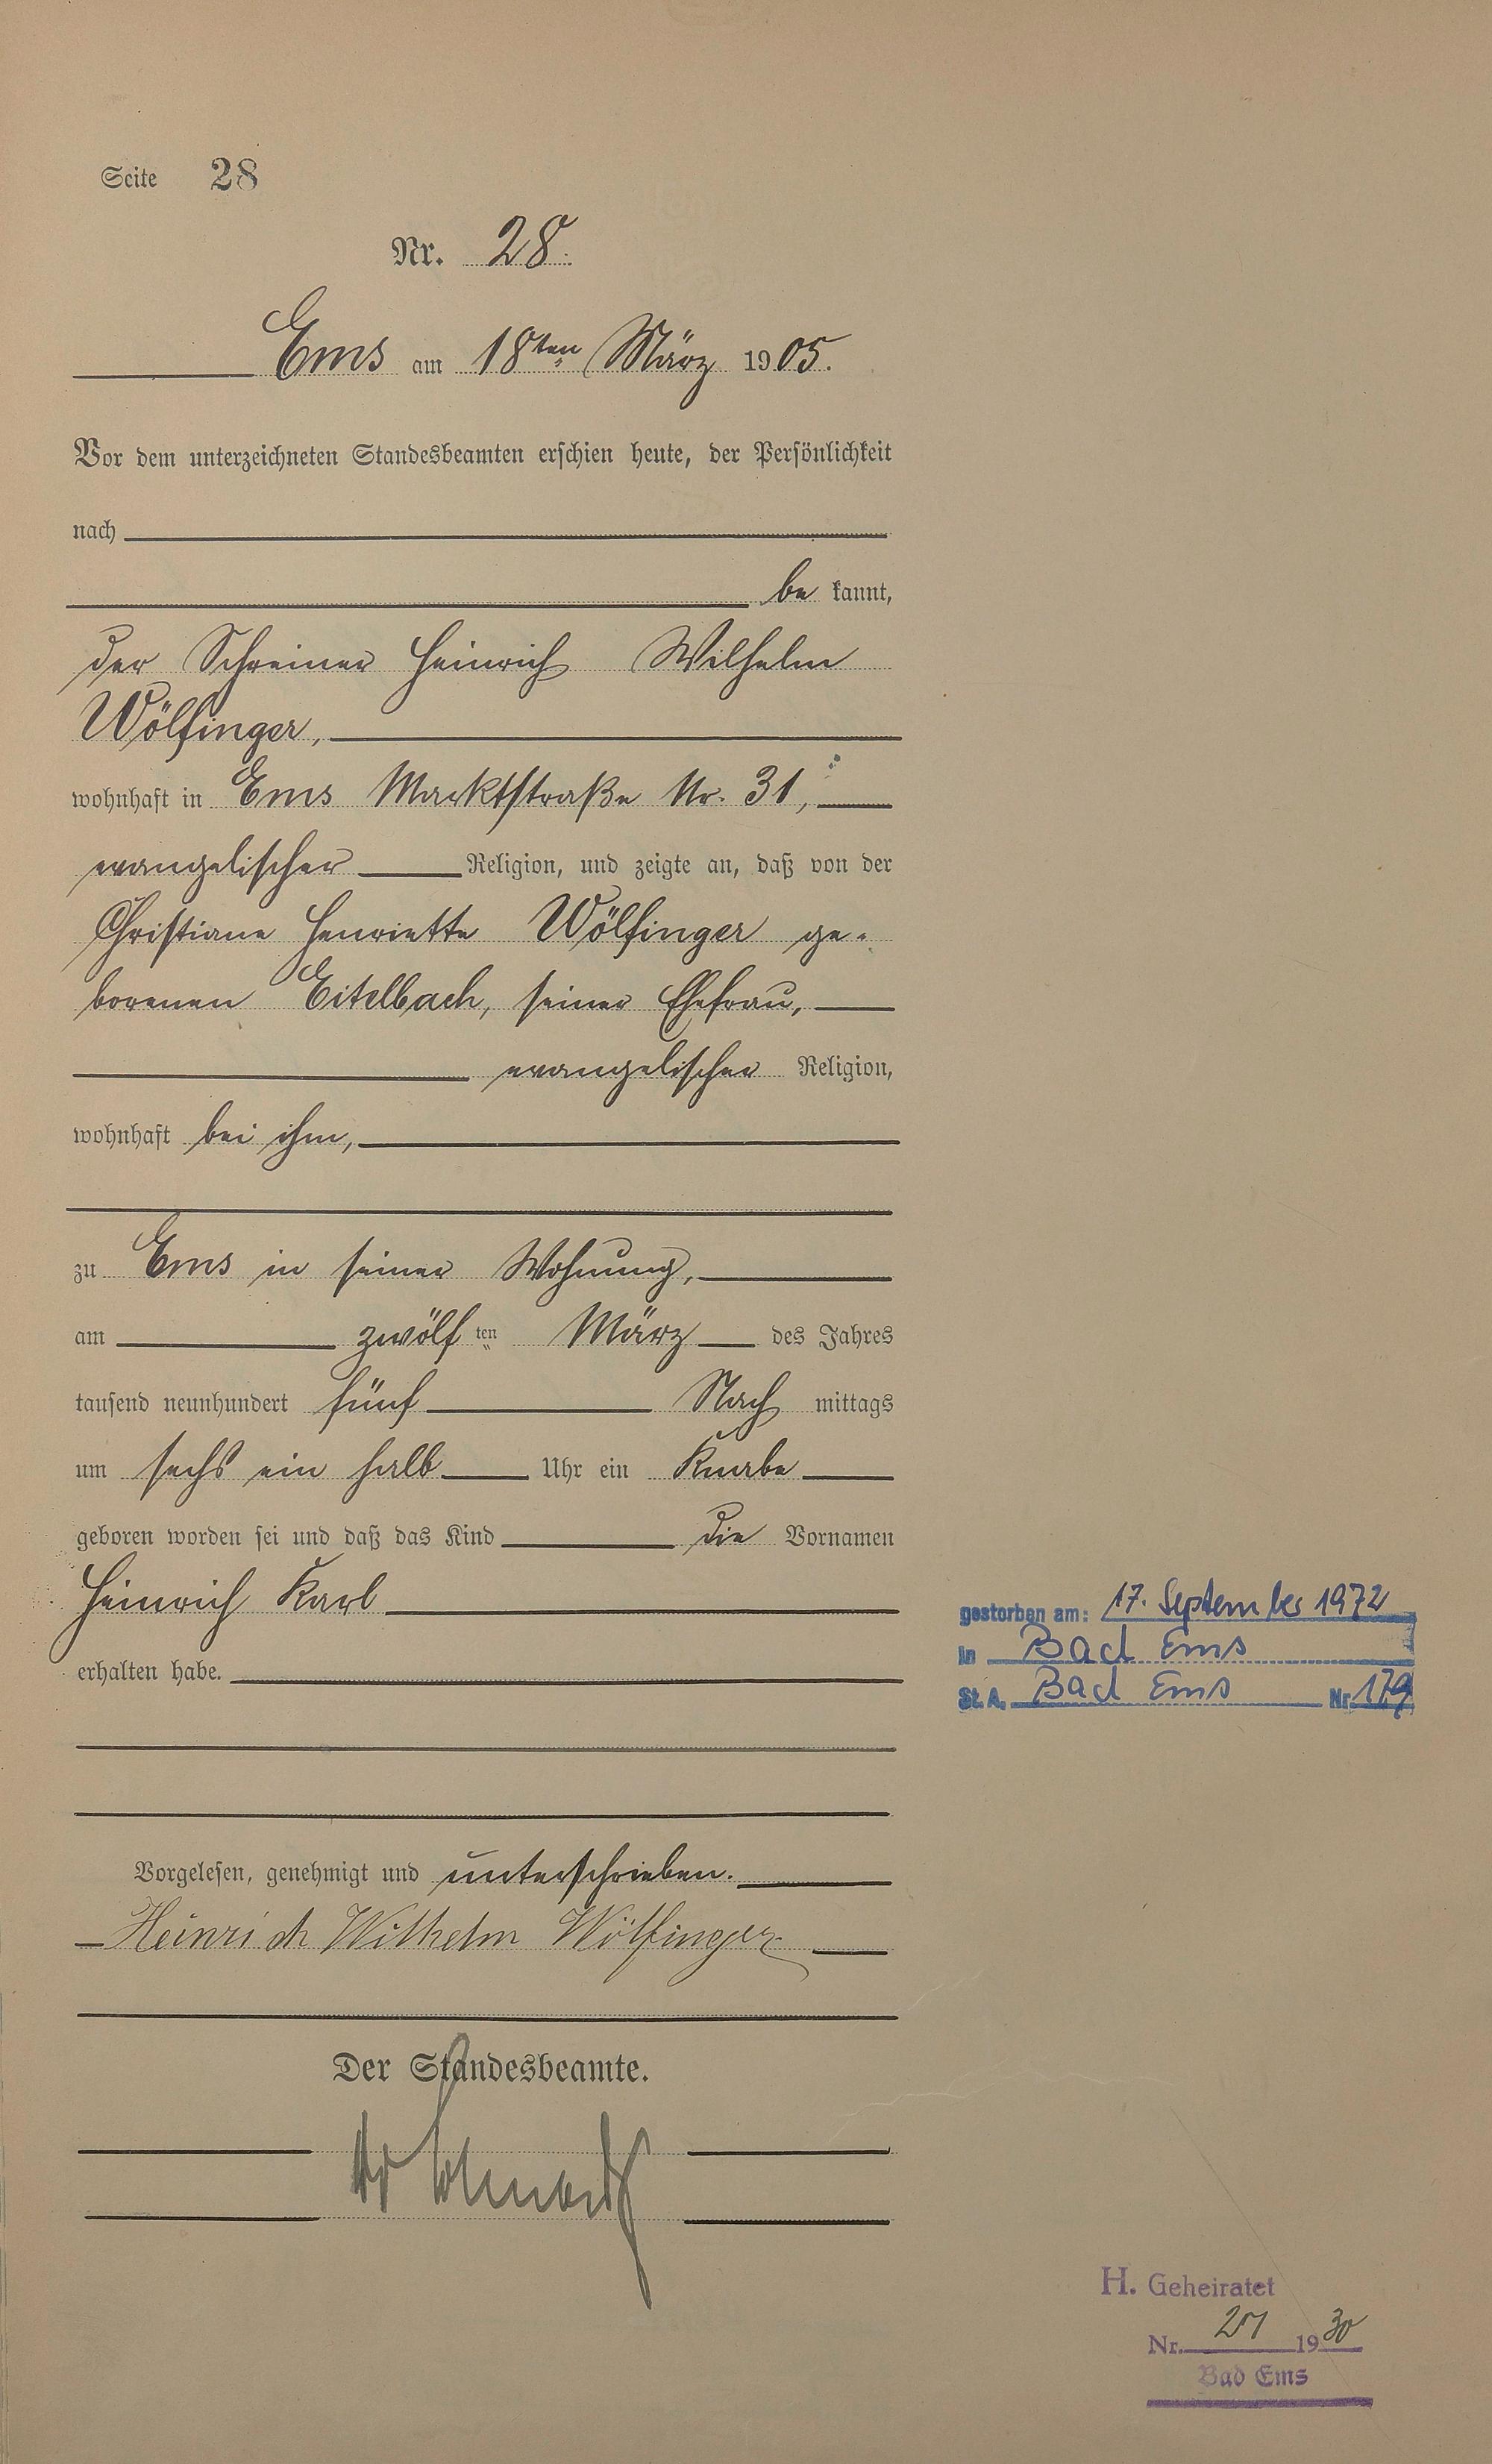 Seite 28
Nr. 28.
Ems am 18ten März 1905.
Vor dem unterzeichneten Standesbeamten erschien heute, der Persönlichkeit
nach
be kannt,
der Schreiner Heinrich Wilhelm
Wölfinger,
wohnhaft in Ems Marktstraße Nr. 31,
evangelischer Religion, und zeigte an, daß von der
Christiane Henriette Wölfinger ge-
borenen Eitelbach, seiner Ehefrau,
evangelischer Religion,
wohnhaft bei ihm,
zu Ems in seiner Wohnung,
am zwölf ten März des Jahres
tausend neunhundert fünf Nach mittags
um sechs ein halb Uhr ein Knabe
geboren worden sei und daß das Kind die Vornamen
Heinrich Karl
erhalten habe.
gestorben am: 17. September 1972
in Bad Ems
St. A. Bad Ems Nr 179
Vorgelesen, genehmigt und unterschrieben.
Heinrich Wilhelm Wölfinger
Der Standesbeamte.
H. Geheiratet
Nr. 1930
Bad Ems